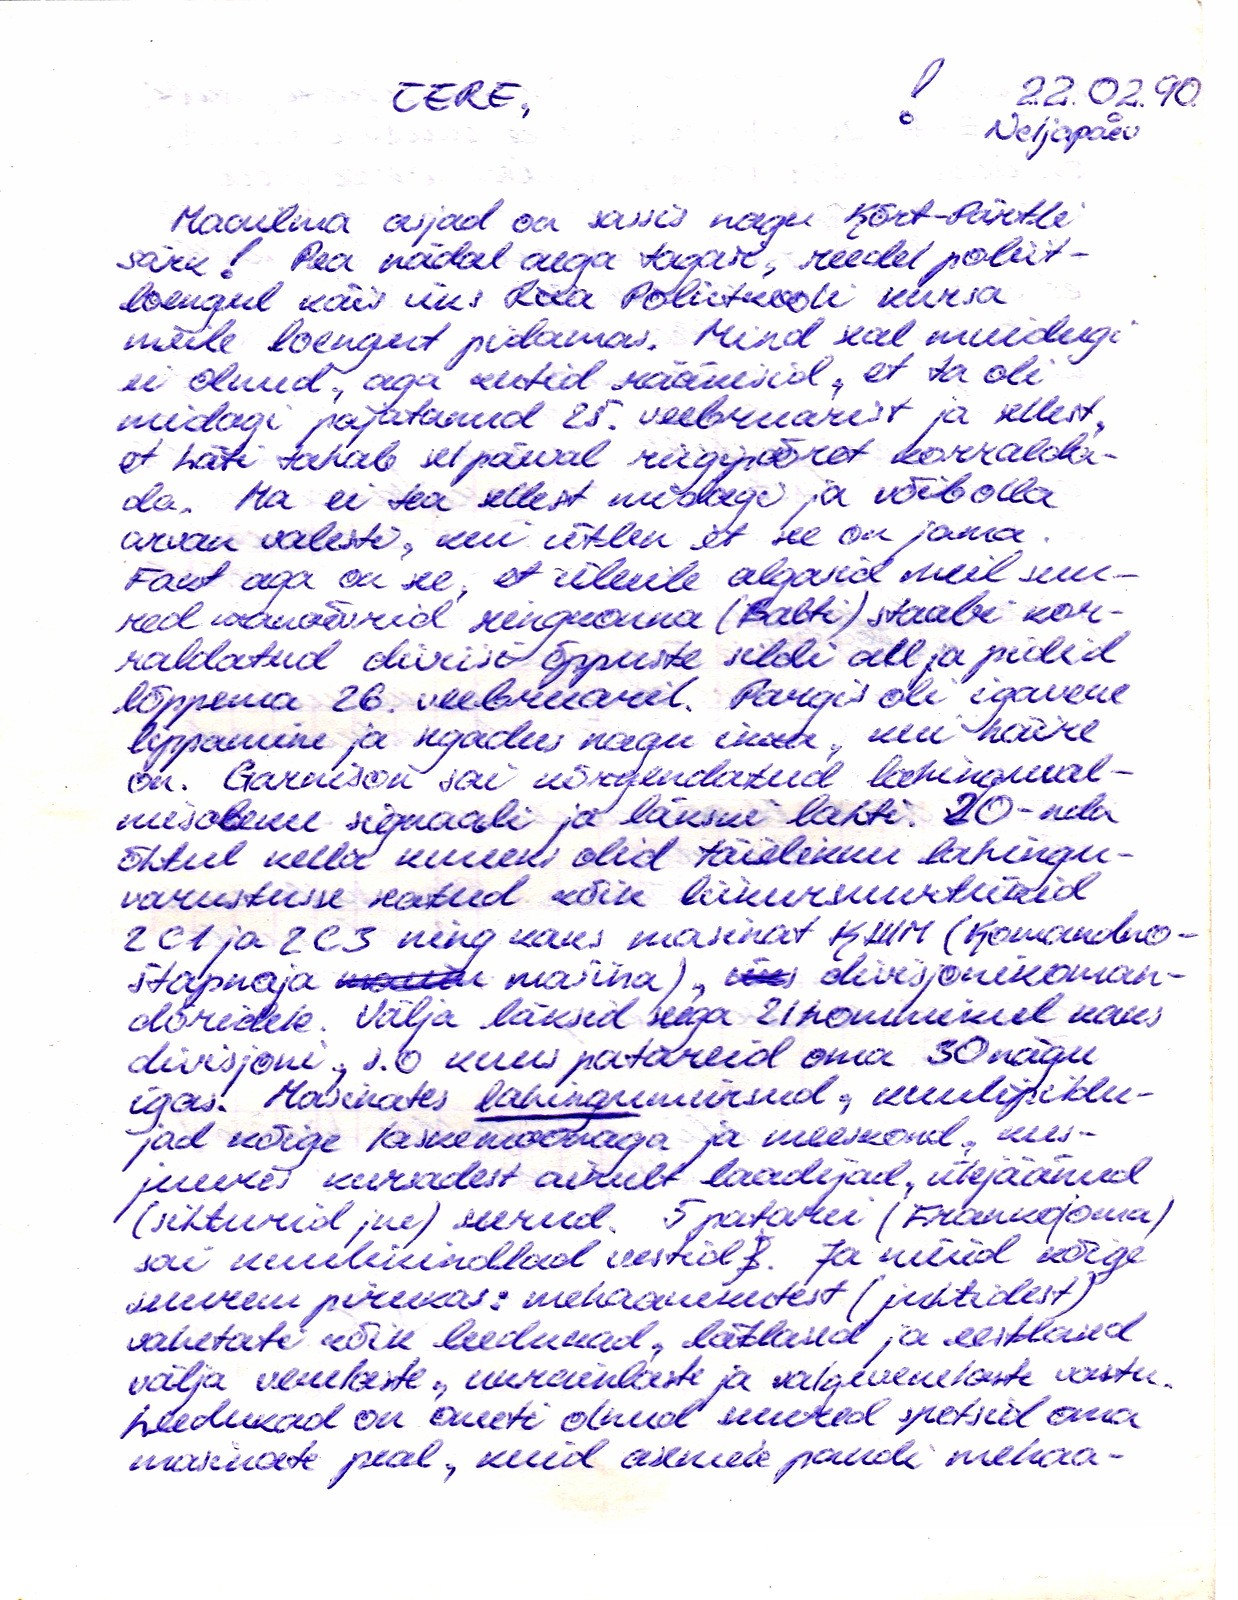 TERE, ! 22.02.90.
Neljapäev
Maailma asjad on sassis nagu Kört-Pärtli
särk! Pea nädal aega tagasi, reedel poliit-
loengul käis üks Riia Poliitkooli kursa
meile loengut pidamas. Mind seal muidugi
ei olnud, aga kutid rääkisid, et ta oli
midagi pajatanud 25. veebruarist ja sellest,
et Läti tahab sel päeval riigipööret korralda-
da. Ma ei tea sellest midagi ja võibolla
arvan valesti, kui ütlen et see on jama.
Fakt aga on see, et üleeile algasid meil suu-
red manöövrid ringkonna (Balti) staabi kor-
raldatud diviisi õppuste sildi all ja pidid
lõppema 26. veebruaril. Pargis oli igavene
lippamine ja segadus nagu ikka, kui häire
on. Garnison sai kõrgendatud lahinguval-
misoleku signaali ja läkski lahti. 20-nda
õhtul kella kuueks olid täielikku lahingu-
varustusse seatud kõik liikursuurtükid
2C1 ja 2C3 ning kaks masinat КШМ (Komandno-
štapnaja mašina), divisjonikoman-
döridele. Välja läksid seega 21 hommikul kaks
divisjoni, s.o kuus patareid oma 30 nägu
igas. Masinates lahingumürsud, kuulipildu-
jad kõige laskemoonaga ja meeskond, kus-
juures kursadest ainult laadijad, ülejäänud
(sihturid jne) seerud. 5 patarei (Franko oma)
sai kuulikindlad vestid. Ja nüüd kõige
suurem pirukas: mehaanikutest (juhtidest)
vahetati kõik leedukad, lätlased ja eestlased
välja venelaste, ukrainlaste ja valgevenelaste vastu.
Leedukad on ometi olnud suured spetsid oma
masinate peal, kuid asemele pandi mehaa-